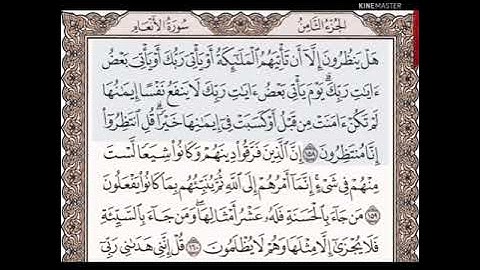 KINEMASTER
الجزء الثامن
سورة الأنعام
هَلْ يَنظُرُونَ إِلَّا أَن تَأْتِيَهُمُ ٱلْمَلَٰٓئِكَةُ أَوْ يَأْتِىَ رَبُّكَ أَوْ يَأْتِىَ بَعْضُ
ءَايَٰتِ رَبِّكَ ۗ يَوْمَ يَأْتِى بَعْضُ ءَايَٰتِ رَبِّكَ لَا يَنفَعُ نَفْسًا إِيمَٰنُهَا
لَمْ تَكُنْ ءَامَنَتْ مِن قَبْلُ أَوْ كَسَبَتْ فِىٓ إِيمَٰنِهَا خَيْرًا ۗ قُلِ ٱنتَظِرُوٓا۟
إِنَّا مُنتَظِرُونَ ١٥٨ إِنَّ ٱلَّذِينَ فَرَّقُوا۟ دِينَهُمْ وَكَانُوا۟ شِيَعًا لَّسْتَ
مِنْهُمْ فِى شَىْءٍ ۚ إِنَّمَآ أَمْرُهُمْ إِلَى ٱللَّهِ ثُمَّ يُنَبِّئُهُم بِمَا كَانُوا۟ يَفْعَلُونَ
١٥٩ مَن جَآءَ بِٱلْحَسَنَةِ فَلَهُۥ عَشْرُ أَمْثَالِهَا ۖ وَمَن جَآءَ بِٱلسَّيِّئَةِ
فَلَا يُجْزَىٰٓ إِلَّا مِثْلَهَا وَهُمْ لَا يُظْلَمُونَ ١٦٠ قُلْ إِنَّنِى هَدَىٰنِى رَبِّىٓ